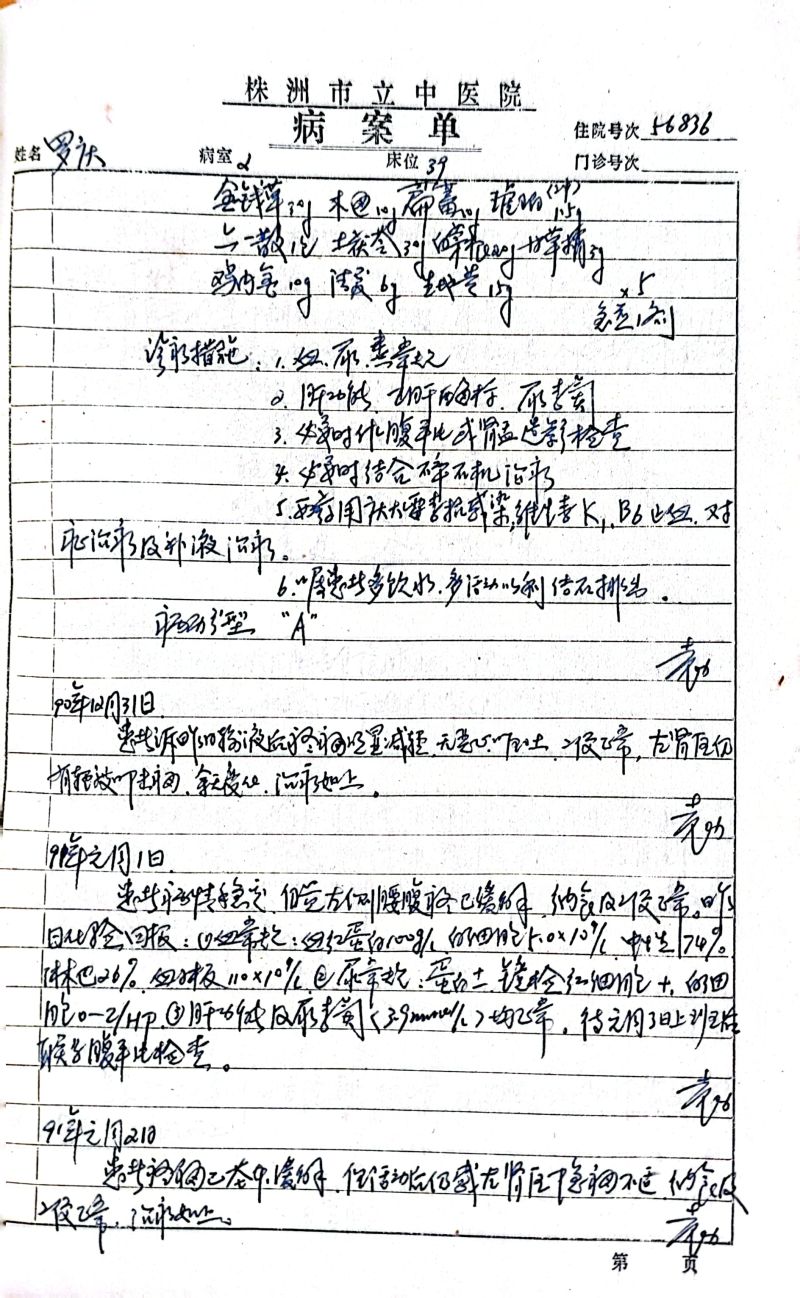 株洲市立中医院
病案单
住院号次 56836
姓名 罗庆 病室 2 床位 39 门诊号次
金钱草30g 木通10g 萹蓄10g 琥珀(冲)1.5g
六一散1包 土茯苓30g 甘草梢3g
鸡内金10g 6g 15g
×5
诊疗措施:1.血、尿、粪常规
2.肝功能、乙肝两对半、尿素氮
3.必要时作腹平片或肾盂造影检查
4.必要时结合碎石机治疗
5.西药用庆大霉素抗感染,维生素K1、B6止血、对
症治疗及补液治疗。
6.嘱患者多饮水,多活动以利结石排出。
病历分型 "A"
90年12月31日
患者诉昨日输液后疼痛明显减轻,无恶心呕吐,二便正常,左肾区仍
有轻微叩击痛,余无变化,治疗如上。
91年元月1日
患者病情稳定,仍觉左侧腰腹疼已缓解,纳食及二便正常。昨
日化验回报:①血常规:血红蛋白100g/L 白细胞5.0×10⁹/L 中性74%
淋巴26% 血小板110×10⁹/L ②尿常规:蛋白± 镜检红细胞+,白细
胞0-2/HP ③肝功能及尿素氮(3.9mmol/L)均正常,待元月3日上班后
联系腹平片检查。
91年元月2日
患者疼痛已基本缓解,但活动后仍感左肾区隐痛不适,纳食及
二便正常,治疗如上。
第 页